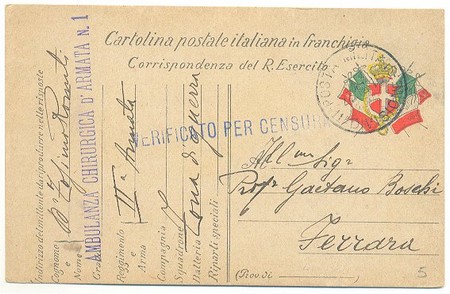 Cartolina postale italiana in franchigia
Corrispondenza del R. Esercito
POSTA MILITARE
VERIFICATO PER CENSURA
All'...mo Sigr
Profr Gaetano Boschi
Ferrara
(Prov. di )
5
Indirizzo del mittente da riprodurre nelle risposte
Cognome e Nome
Dr Cosimo
Grado
AMBULANZA CHIRURGICA D'ARMATA N. 1
Reggimento e Arma
IIa Armata
Compagnia
Squadrone
Batteria
Zona di guerra
Riparti speciali